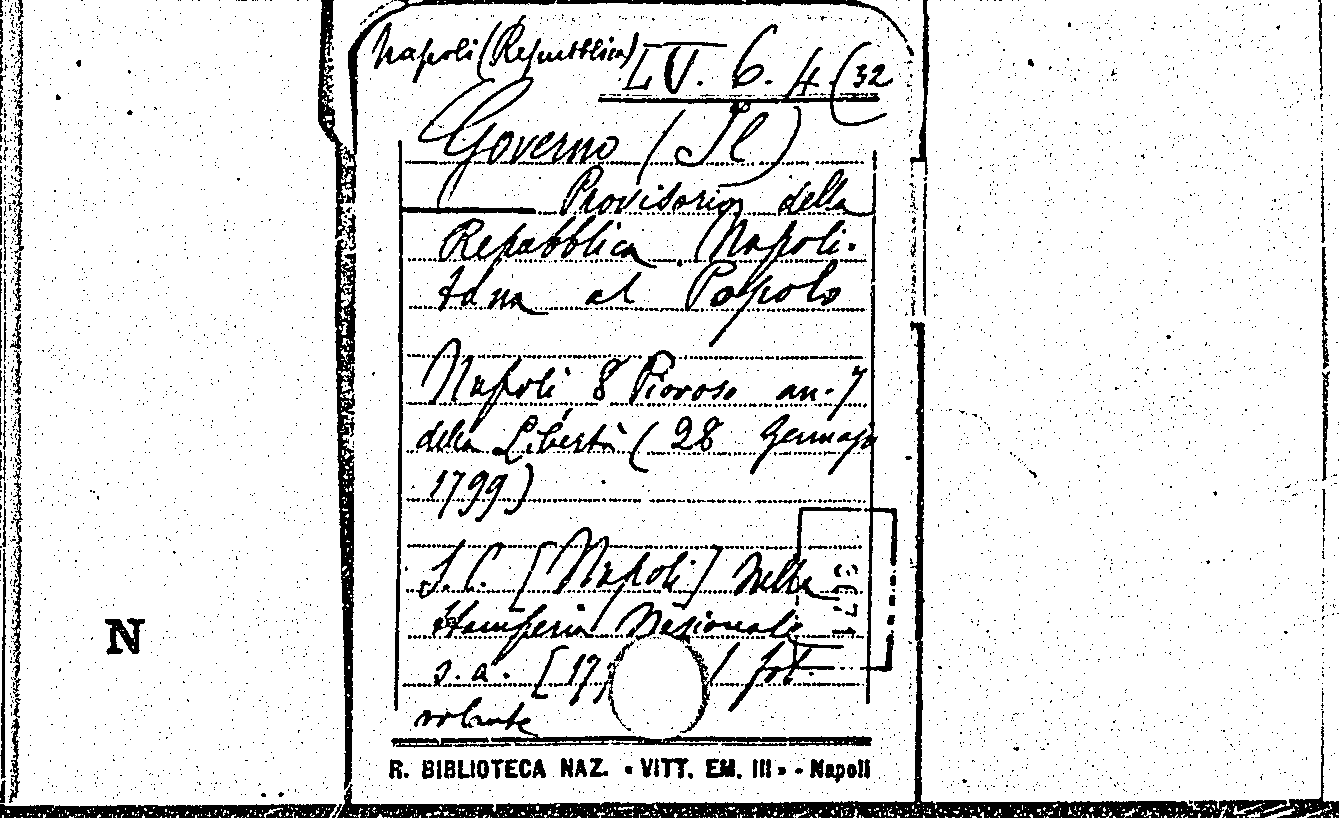 Napoli (Repubblica) LV. 6. 4 (32
Governo (Il)
Provisorio della
Repubblica Napoli-
tana al Popolo
Napoli 8 Piovoso an. 7
della Libertà (28 Gennajo
1799)
S. l. [Napoli] Nella
Stamperia Nazionale
s. a. [17 ] fol.
volante
N
R. BIBLIOTECA NAZ. « VITT. EM. III » - Napoli